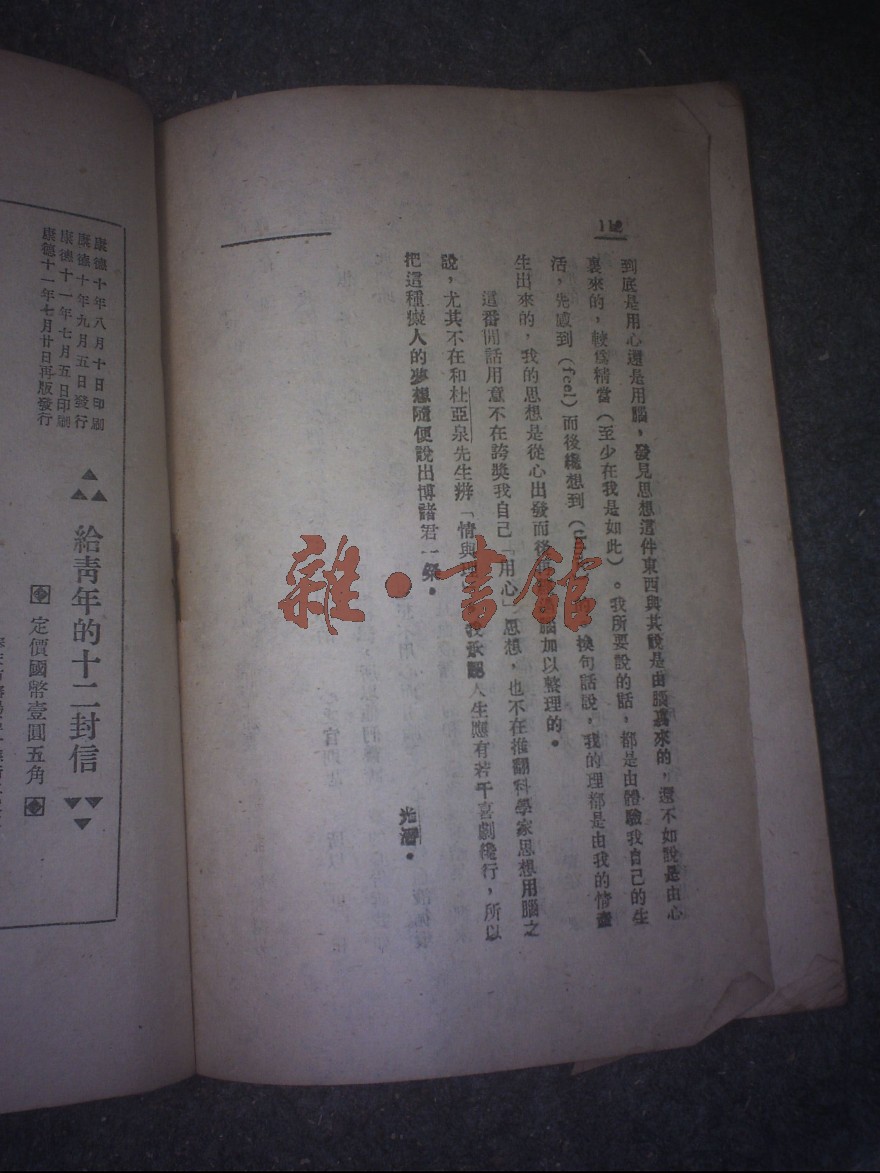 到底是用心還是用腦，發見思想這件東西與其說是由腦裏來的，還不如說是由心
裏來的，較爲精當（至少在我是如此）。我所要說的話，都是由體驗我自己的生
活，先感到（feel）而後纔想到（換句話說，我的理都是由我的情產
生出來的，我的思想是從心出發而後腦加以整理的。
這番閒話用意不在誇奬我自己「用心」思想，也不在推翻科學家思想用腦之
說，尤其不在和杜亞泉先生辨「情與理承認人生應有若干喜劇纔行，所以
把這種獃人的夢想隨便說出博諸君一粲。
光潛。
雜·書館
康德十年八月十日印刷
康德十年九月五日發行
康德十一年七月五日印刷
康德十一年七月廿日再版發行
給靑年的十二封信
定價國幣壹圓五角